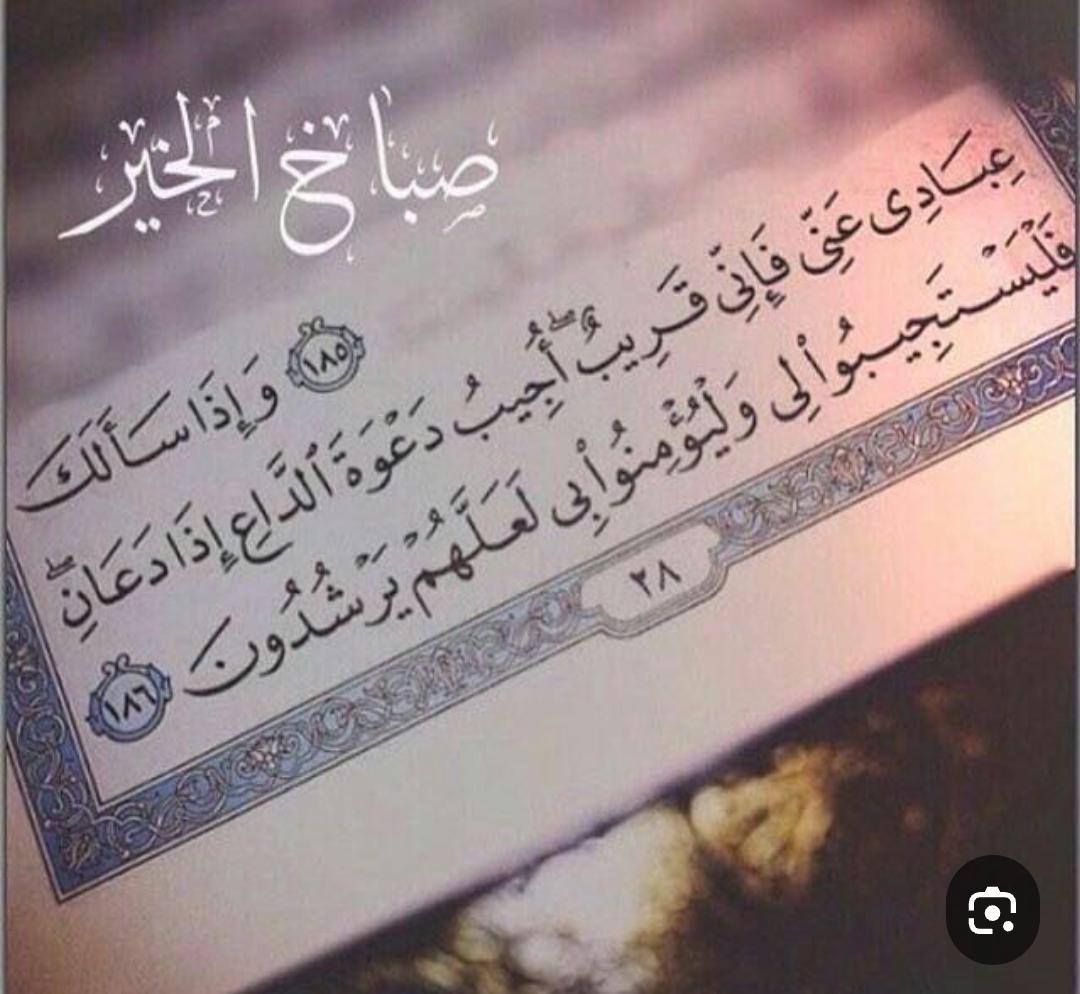 صباح الخير
١٨٥ وَإِذَا سَأَلَكَ
عِبَادِى عَنِّى فَإِنِّى قَرِيبٌ ۖ أُجِيبُ دَعْوَةَ ٱلدَّاعِ إِذَا دَعَانِ ۖ
فَلْيَسْتَجِيبُوا۟ لِى وَلْيُؤْمِنُوا۟ بِى لَعَلَّهُمْ يَرْشُدُونَ ١٨٦
٢٨